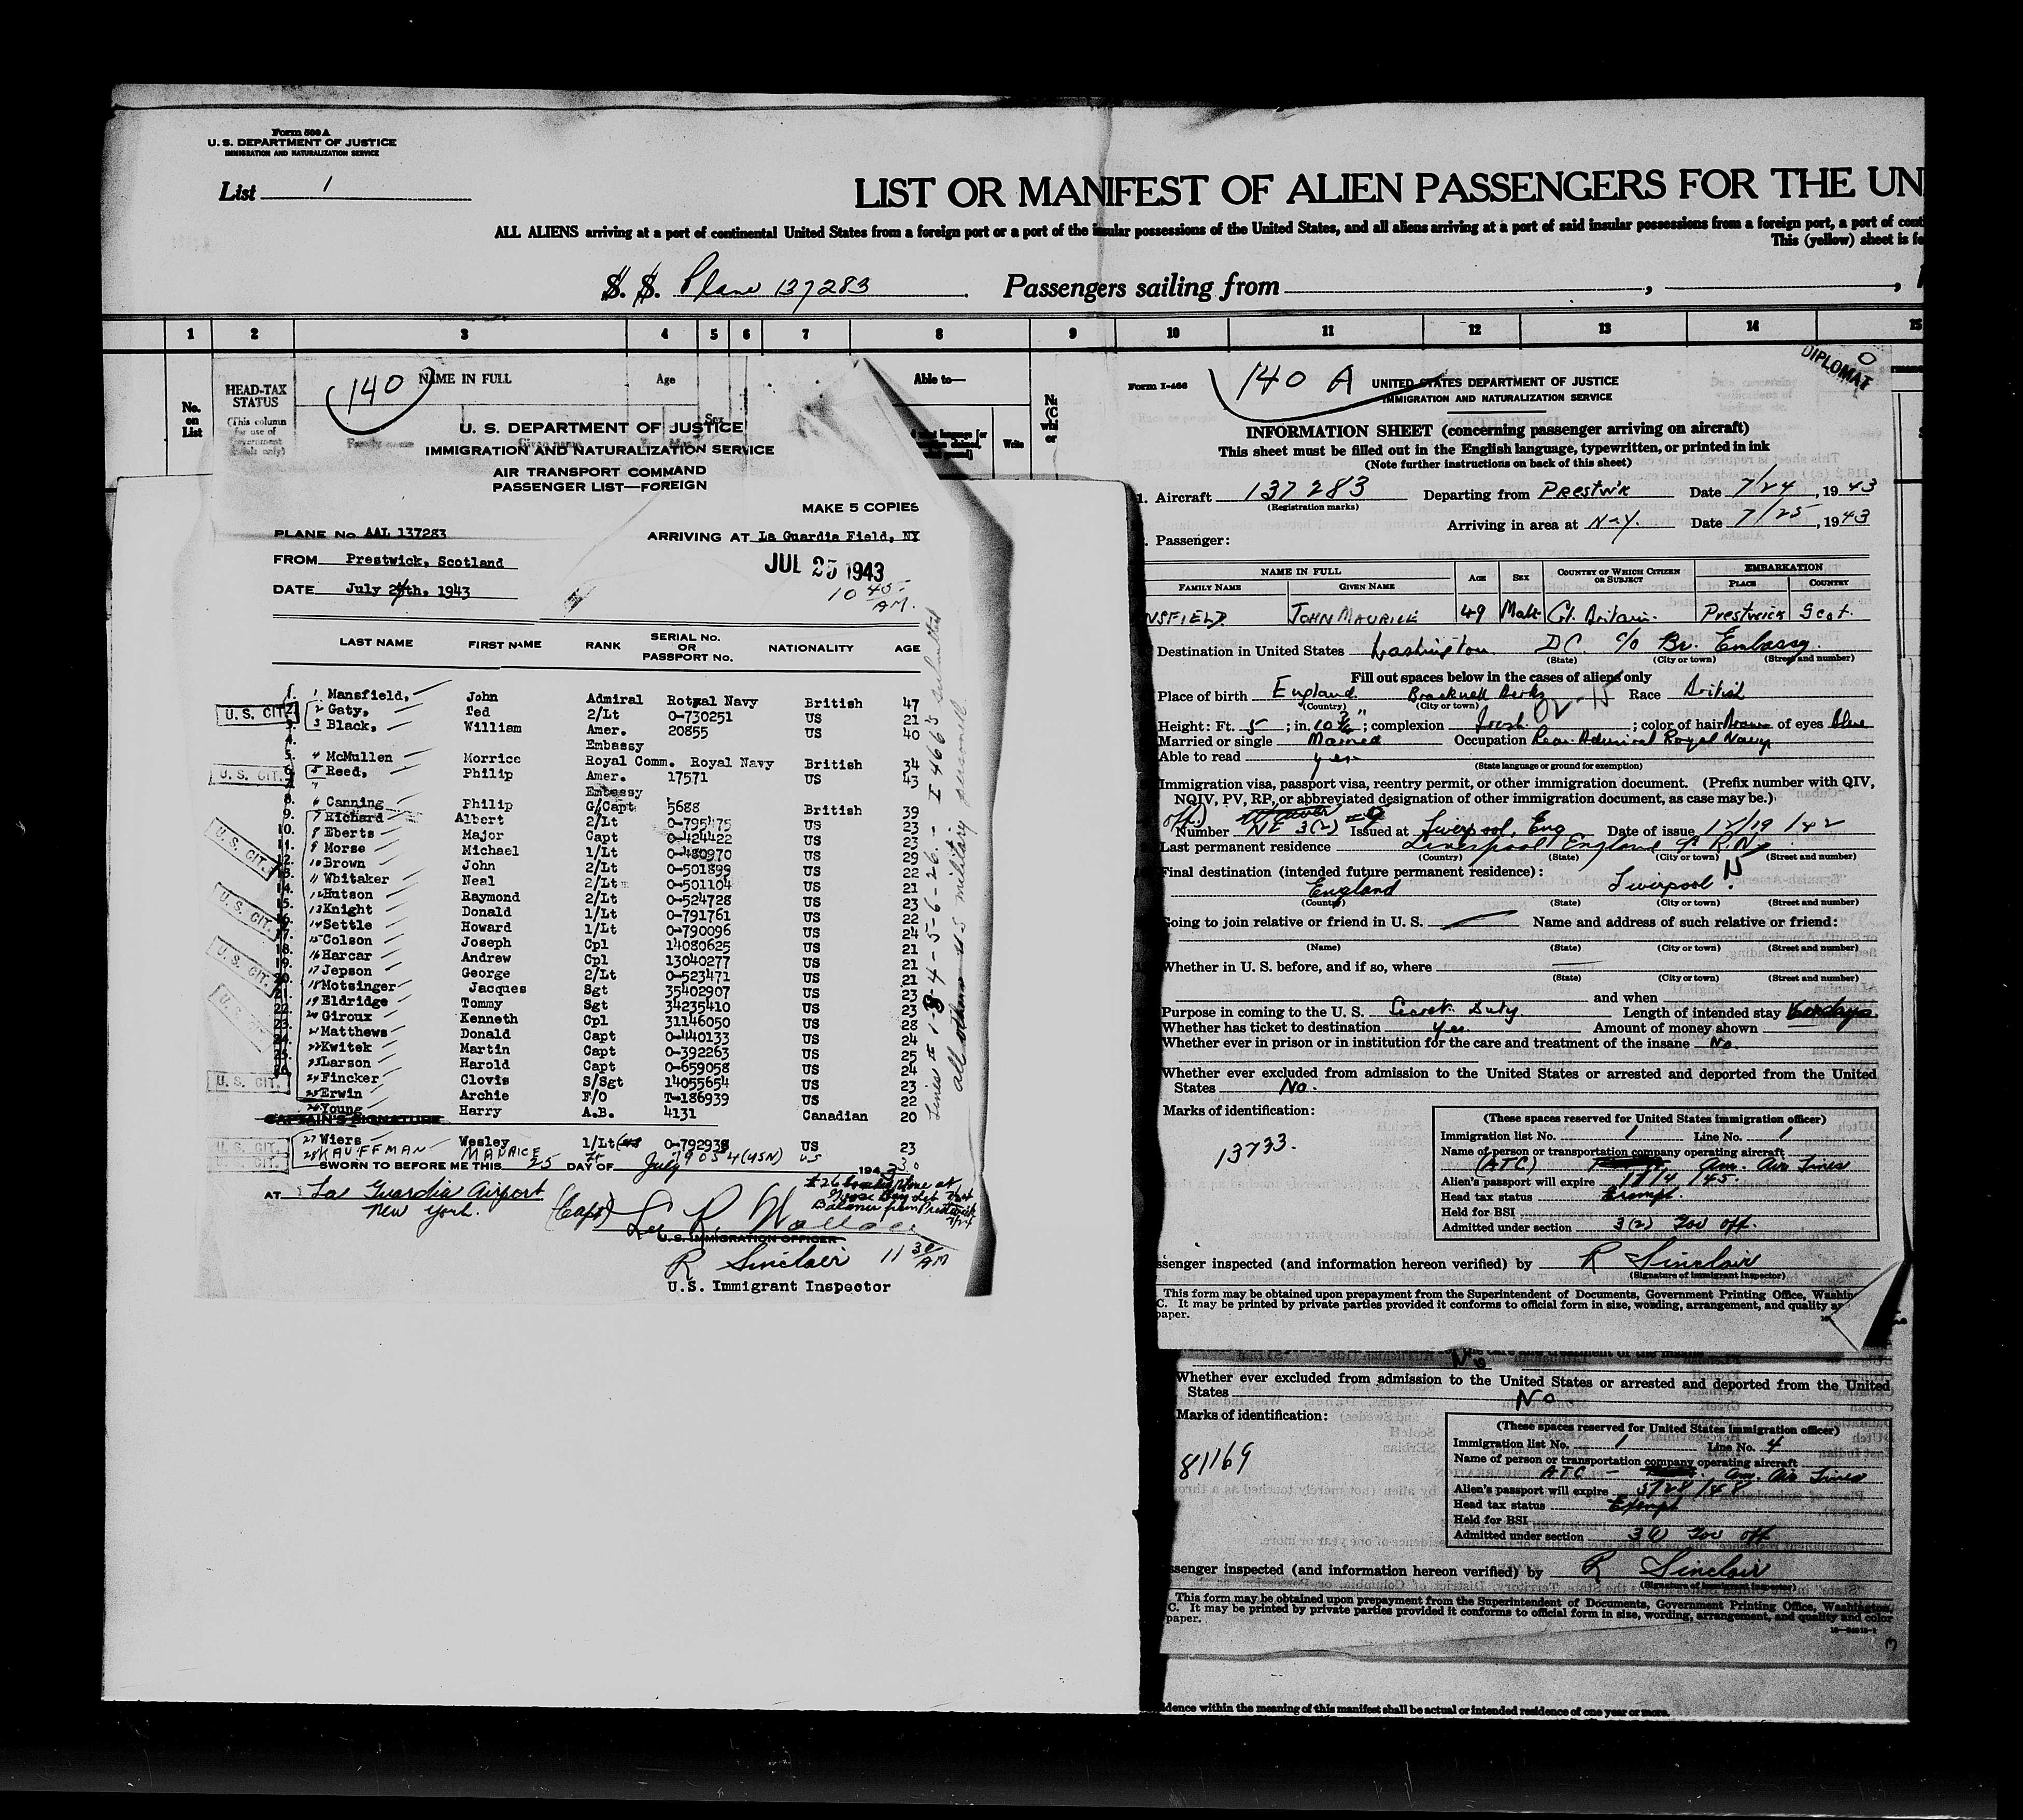 Form 500 A
U. S. DEPARTMENT OF JUSTICE
IMMIGRATION AND NATURALIZATION SERVICE
List 1
LIST OR MANIFEST OF ALIEN PASSENGERS FOR THE UN
ALL ALIENS arriving at a port of continental United States from a foreign port or a port of the insular possessions of the United States, and all aliens arriving at a port of said insular possessions from a foreign port, a port of cont
This (yellow) sheet is fo
S. S. Plane 137283 Passengers sailing from
1 2 3 4 5 6 7 8 9 10 11 12 13 14 15
No. on List
HEAD-TAX STATUS
(This column for use of Government officials only)
140
NAME IN FULL
Family name Given name
Age
Sex
Able to—
Write
U. S. DEPARTMENT OF JUSTICE
IMMIGRATION AND NATURALIZATION SERVICE
AIR TRANSPORT COMMAND
PASSENGER LIST—FOREIGN
MAKE 5 COPIES
PLANE No AAL 137283 ARRIVING AT La Guardia Field, NY
FROM Prestwick, Scotland JUL 25 1943
DATE July 24th. 1943 10 45 AM.
LAST NAME FIRST NAME RANK SERIAL No. OR PASSPORT No. NATIONALITY AGE
1 Mansfield, John Admiral Royal Navy British 47
U. S. CIT. 2 Gaty, Ted 2/Lt 0-730251 US 21
3 Black, William Amer. Embassy 20855 US 40
4 McMullen Morrice Royal Comm. Royal Navy British 34
U. S. CIT. 5 Reed, Philip Amer. Embassy 17571 US 43
6 Canning Philip G/Capt 5688 British 39
7 Richard Albert 2/Lt 0-795475 US 23
8 Eberts Major Capt 0-424422 US 23
9 Morse Michael 1/Lt 0-480970 US 29
U. S. CIT. 10 Brown John 2/Lt 0-501899 US 22
11 Whitaker Neal 2/Lt 0-501104 US 21
12 Hutson Raymond 2/Lt 0-524728 US 23
U. S. CIT. 13 Knight Donald 1/Lt 0-791761 US 22
14 Settle Howard 1/Lt 0-790096 US 24
15 Colson Joseph Cpl 14080625 US 21
16 Harcar Andrew Cpl 13040277 US 21
U. S. CIT. 17 Jepson George 2/Lt 0-523471 US 21
18 Motsinger Jacques Sgt 35402907 US 23
19 Eldridge Tommy Sgt 34235410 US 23
U. S. CIT. 20 Giroux Kenneth Cpl 31146050 US 28
21 Matthews Donald Capt 0-440133 US 24
22 Kwitek Martin Capt 0-392263 US 25
23 Larson Harold Capt 0-659058 US 24
U. S. CIT. 24 Fincker Clovis S/Sgt 14055654 US 23
25 Erwin Archie F/O T-186939 US 22
26 Young Harry A.B. 4131 Canadian 20
CAPTAIN'S SIGNATURE
U. S. CIT. 27 Wiers Wesley 1/Lt 0-792938 US 23
U. S. CIT. 28 KAUFFMAN MAURICE Lt 79054 (USN) US 30
Lines # 1-3-4-5-6-26. - I 466's submitted
all others US military personnel
SWORN TO BEFORE ME THIS 25 DAY OF July 1943
AT La Guardia Airport
New York.
#26 boarded plane at Goose Bay
Balance from Prestwick 7/24
(Capt) Lee R. Wallace
U.S. IMMIGRATION OFFICER
R Sinclair 11 30 AM
U.S. Immigrant Inspector
DIPLOMAT
Form I-466 140 A UNITED STATES DEPARTMENT OF JUSTICE
IMMIGRATION AND NATURALIZATION SERVICE
INFORMATION SHEET (concerning passenger arriving on aircraft)
This sheet must be filled out in the English language, typewritten, or printed in ink
(Note further instructions on back of this sheet)
1. Aircraft 137283 Departing from Prestwik Date 7/24, 1943
(Registration marks)
Arriving in area at N-Y. Date 7/25, 1943
Passenger:
NAME IN FULL AGE SEX COUNTRY OF WHICH CITIZEN OR SUBJECT EMBARKATION
FAMILY NAME GIVEN NAME PLACE COUNTRY
NSFIELD JOHN MAURICE 49 Male Gt. Britain. Prestwick Scot.
Destination in United States Washington DC. c/o Br. Embassy.
(State) (City or town) (Street and number)
Fill out spaces below in the cases of aliens only
Place of birth England Bracknell Berks Race British
(Country) (City or town)
Height: Ft. 5; in. 10 ½"; complexion fresh; color of hair Brown of eyes blue
Married or single Married Occupation Rear Admiral Royal Navy
Able to read yes
(State language or ground for exemption)
Immigration visa, passport visa, reentry permit, or other immigration document. (Prefix number with QIV,
NQIV, PV, RP, or abbreviated designation of other immigration document, as case may be.)
Number NE 3(2) Issued at Liverpool, Eng Date of issue 12/19/42
Last permanent residence Liverpool England
(Country) (State) (City or town) (Street and number)
Final destination (intended future permanent residence):
England Liverpool
(Country) (State) (City or town) (Street and number)
Going to join relative or friend in U. S. Name and address of such relative or friend:
(Name) (State) (City or town) (Street and number)
Whether in U. S. before, and if so, where
(State) (City or town) (Street and number)
and when
Purpose in coming to the U. S. Secret Duty Length of intended stay
Whether has ticket to destination yes Amount of money shown
Whether ever in prison or in institution for the care and treatment of the insane No.
Whether ever excluded from admission to the United States or arrested and deported from the United
States No.
Marks of identification:
13733.
(These spaces reserved for United States immigration officer)
Immigration list No. 1 Line No. 1
Name of person or transportation company operating aircraft
(ATC) Am. Air Lines
Alien's passport will expire 1/14/45.
Head tax status Exempt.
Held for BSI
Admitted under section 3(2) Gov off.
ssenger inspected (and information hereon verified) by R Sinclair
(Signature of immigrant inspector)
This form may be obtained upon prepayment from the Superintendent of Documents, Government Printing Office, Washin
C. It may be printed by private parties provided it conforms to official form in size, wording, arrangement, and quality a
paper.
No
Whether ever excluded from admission to the United States or arrested and deported from the United
States No
Marks of identification:
81169
(These spaces reserved for United States immigration officer)
Immigration list No. 1 Line No. 4
Name of person or transportation company operating aircraft
ATC - Am. Air Lines
Alien's passport will expire 3/28/48
Head tax status Exempt
Held for BSI
Admitted under section 3(2) Gov off
ssenger inspected (and information hereon verified) by R Sinclair
(Signature of immigrant inspector)
This form may be obtained upon prepayment from the Superintendent of Documents, Government Printing Office, Washington,
C. It may be printed by private parties provided it conforms to official form in size, wording, arrangement, and quality and color
paper.
idence within the meaning of this manifest shall be actual or intended residence of one year or more.